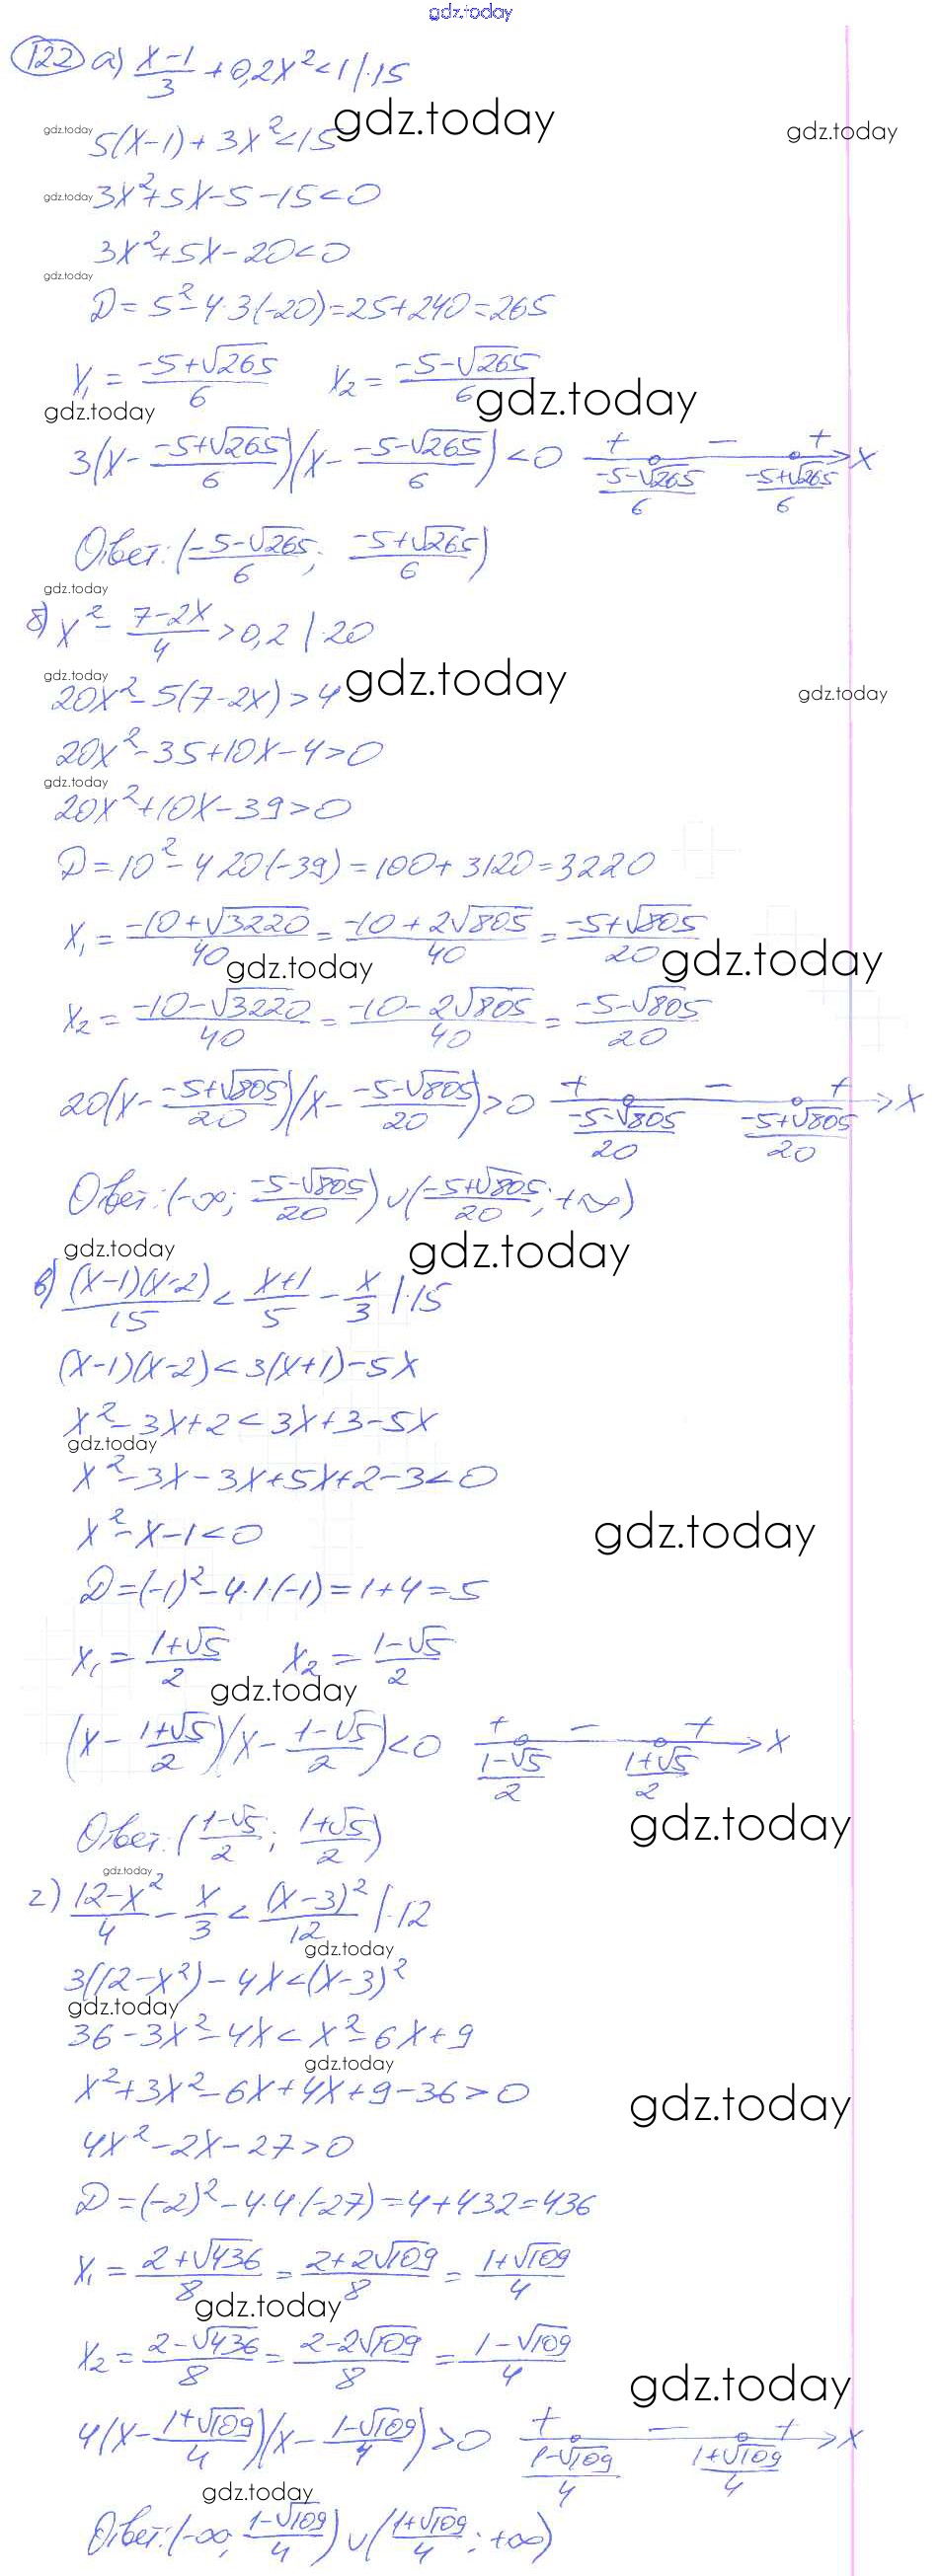 gdz.today
122 а) (x-1)/3 + 0,2x² < 1 | ·15
gdz.today
gdz.today
gdz.today
5(x-1) + 3x² < 15
gdz.today
3x² + 5x - 5 - 15 < 0
3x² + 5x - 20 < 0
gdz.today
D = 5² - 4·3(-20) = 25 + 240 = 265
x₁ = (-5+√265)/6 x₂ = (-5-√265)/6
gdz.today
gdz.today
3(x - (-5+√265)/6)(x - (-5-√265)/6) < 0 + - + x
(-5-√265)/6 (-5+√265)/6
Ответ: ((-5-√265)/6; (-5+√265)/6)
gdz.today
б) x² - (7-2x)/4 > 0,2 | 20
gdz.today
gdz.today
gdz.today
20x² - 5(7-2x) > 4
20x² - 35 + 10x - 4 > 0
gdz.today
20x² + 10x - 39 > 0
D = 10² - 4 20(-39) = 100 + 3120 = 3220
x₁ = (-10+√3220)/40 = (-10+2√805)/40 = (-5+√805)/20
gdz.today
gdz.today
x₂ = (-10-√3220)/40 = (-10-2√805)/40 = (-5-√805)/20
20(x - (-5+√805)/20)(x - (-5-√805)/20) > 0 + - + x
(-5-√805)/20 (-5+√805)/20
Ответ: (-∞; (-5-√805)/20) ∪ ((-5+√805)/20; +∞)
gdz.today
gdz.today
в) (x-1)(x-2)/15 < (x+1)/5 - x/3 | ·15
(x-1)(x-2) < 3(x+1) - 5x
x² - 3x + 2 < 3x + 3 - 5x
gdz.today
x² - 3x - 3x + 5x + 2 - 3 < 0
x² - x - 1 < 0
gdz.today
D = (-1)² - 4·1·(-1) = 1 + 4 = 5
x₁ = (1+√5)/2 x₂ = (1-√5)/2
gdz.today
(x - (1+√5)/2)(x - (1-√5)/2) < 0 + - + x
(1-√5)/2 (1+√5)/2
gdz.today
Ответ: ((1-√5)/2; (1+√5)/2)
gdz.today
г) (12-x²)/4 - x/3 < (x-3)²/12 | ·12
gdz.today
3(12-x²) - 4x < (x-3)²
gdz.today
36 - 3x² - 4x < x² - 6x + 9
gdz.today
x² + 3x² - 6x + 4x + 9 - 36 > 0
gdz.today
4x² - 2x - 27 > 0
D = (-2)² - 4·4·(-27) = 4 + 432 = 436
x₁ = (2+√436)/8 = (2+2√109)/8 = (1+√109)/4
gdz.today
x₂ = (2-√436)/8 = (2-2√109)/8 = (1-√109)/4
gdz.today
4(x - (1+√109)/4)(x - (1-√109)/4) > 0 + - + x
(1-√109)/4 (1+√109)/4
gdz.today
Ответ: (-∞; (1-√109)/4) ∪ ((1+√109)/4; +∞)